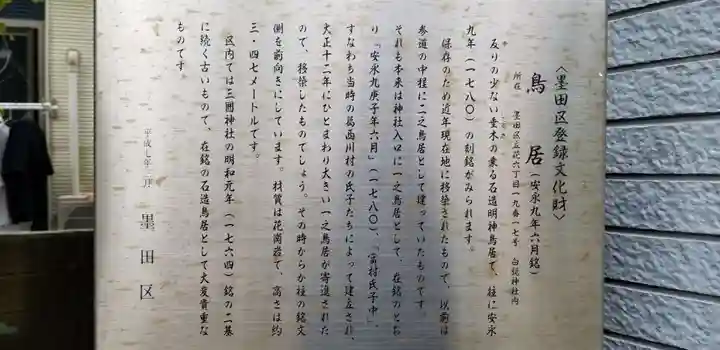 〈墨田区登録文化財〉
鳥居(安永九年六月銘)
所在 墨田区立花六丁目一九番一七号 白髭神社内
反りの少ない笠木の乗る石造明神鳥居で、柱に安永
九年(一七八〇)の刻銘がみられます。
保存のため近年現在地に移築されたもので、以前は
参道の中程に二之鳥居として建っていたものです。
それも本来は神社入口に一之鳥居として、在銘のとお
り「安永九庚子年六月」(一七八〇)、「當村氏子中」
すなわち当時の葛西川村の氏子たちによって建立され、
大正十二年にひとまわり大きい一之鳥居が寄進された
ので、移築したものでしょう。その時からか柱の銘文
側を前向きにしています。材質は花崗岩で、高さは約
三・四七メートルです。
区内では三圍神社の明和元年(一七六四)銘の二基
に続く古いもので、在銘の石造鳥居として大変貴重な
ものです。
平成七年 月
墨田区